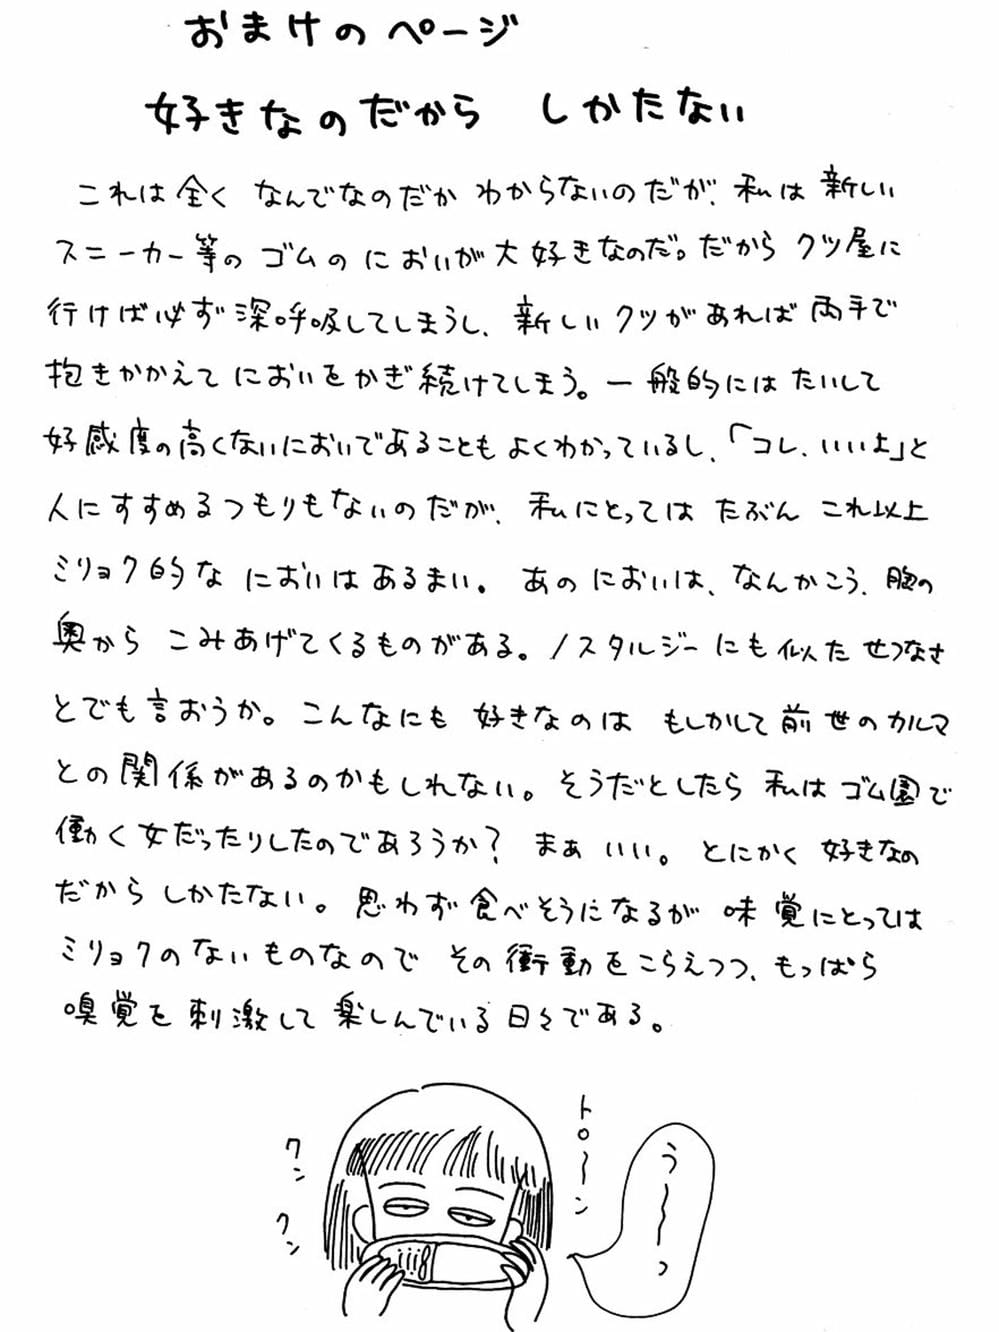 おまけのページ
好きなのだから しかたない
これは全く なんでなのだか わからないのだが、私は 新しい
スニーカー等の ゴムの においが大好きなのだ。だから クツ屋に
行けば必ず深呼吸してしまうし、新しいクツがあれば両手で
抱きかかえて においをかぎ続けてしまう。一般的には たいして
好感度の高くないにおいであることも よくわかっているし、「コレ、いいよ」と
人にすすめるつもりもないのだが、私にとっては たぶん これ以上
ミリョク的な においは あるまい。 あの においは、なんかこう、胸の
奥から こみあげてくるものがある。ノスタルジーにも似た せつなさ
とでも言おうか。こんなにも 好きなのは もしかして前世のカルマ
との関係があるのかもしれない。そうだとしたら 私はゴム園で
働く女だったりしたのであろうか? まぁ いい。とにかく 好きなの
だから しかたない。思わず食べそうになるが 味覚にとっては
ミリョクのないものなので その衝動をこらえつつ、もっぱら
嗅覚を刺激して楽しんでいる日々である。
トロ〜ン
う〜〜っ
クン
クン